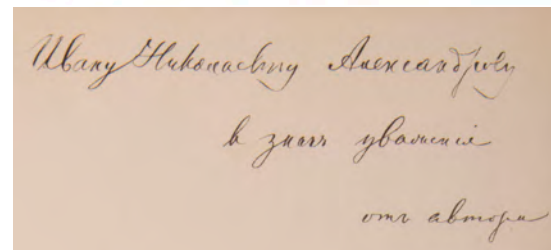 Ивану Николаевичу Александрову
в знакъ уваженія
отъ автора